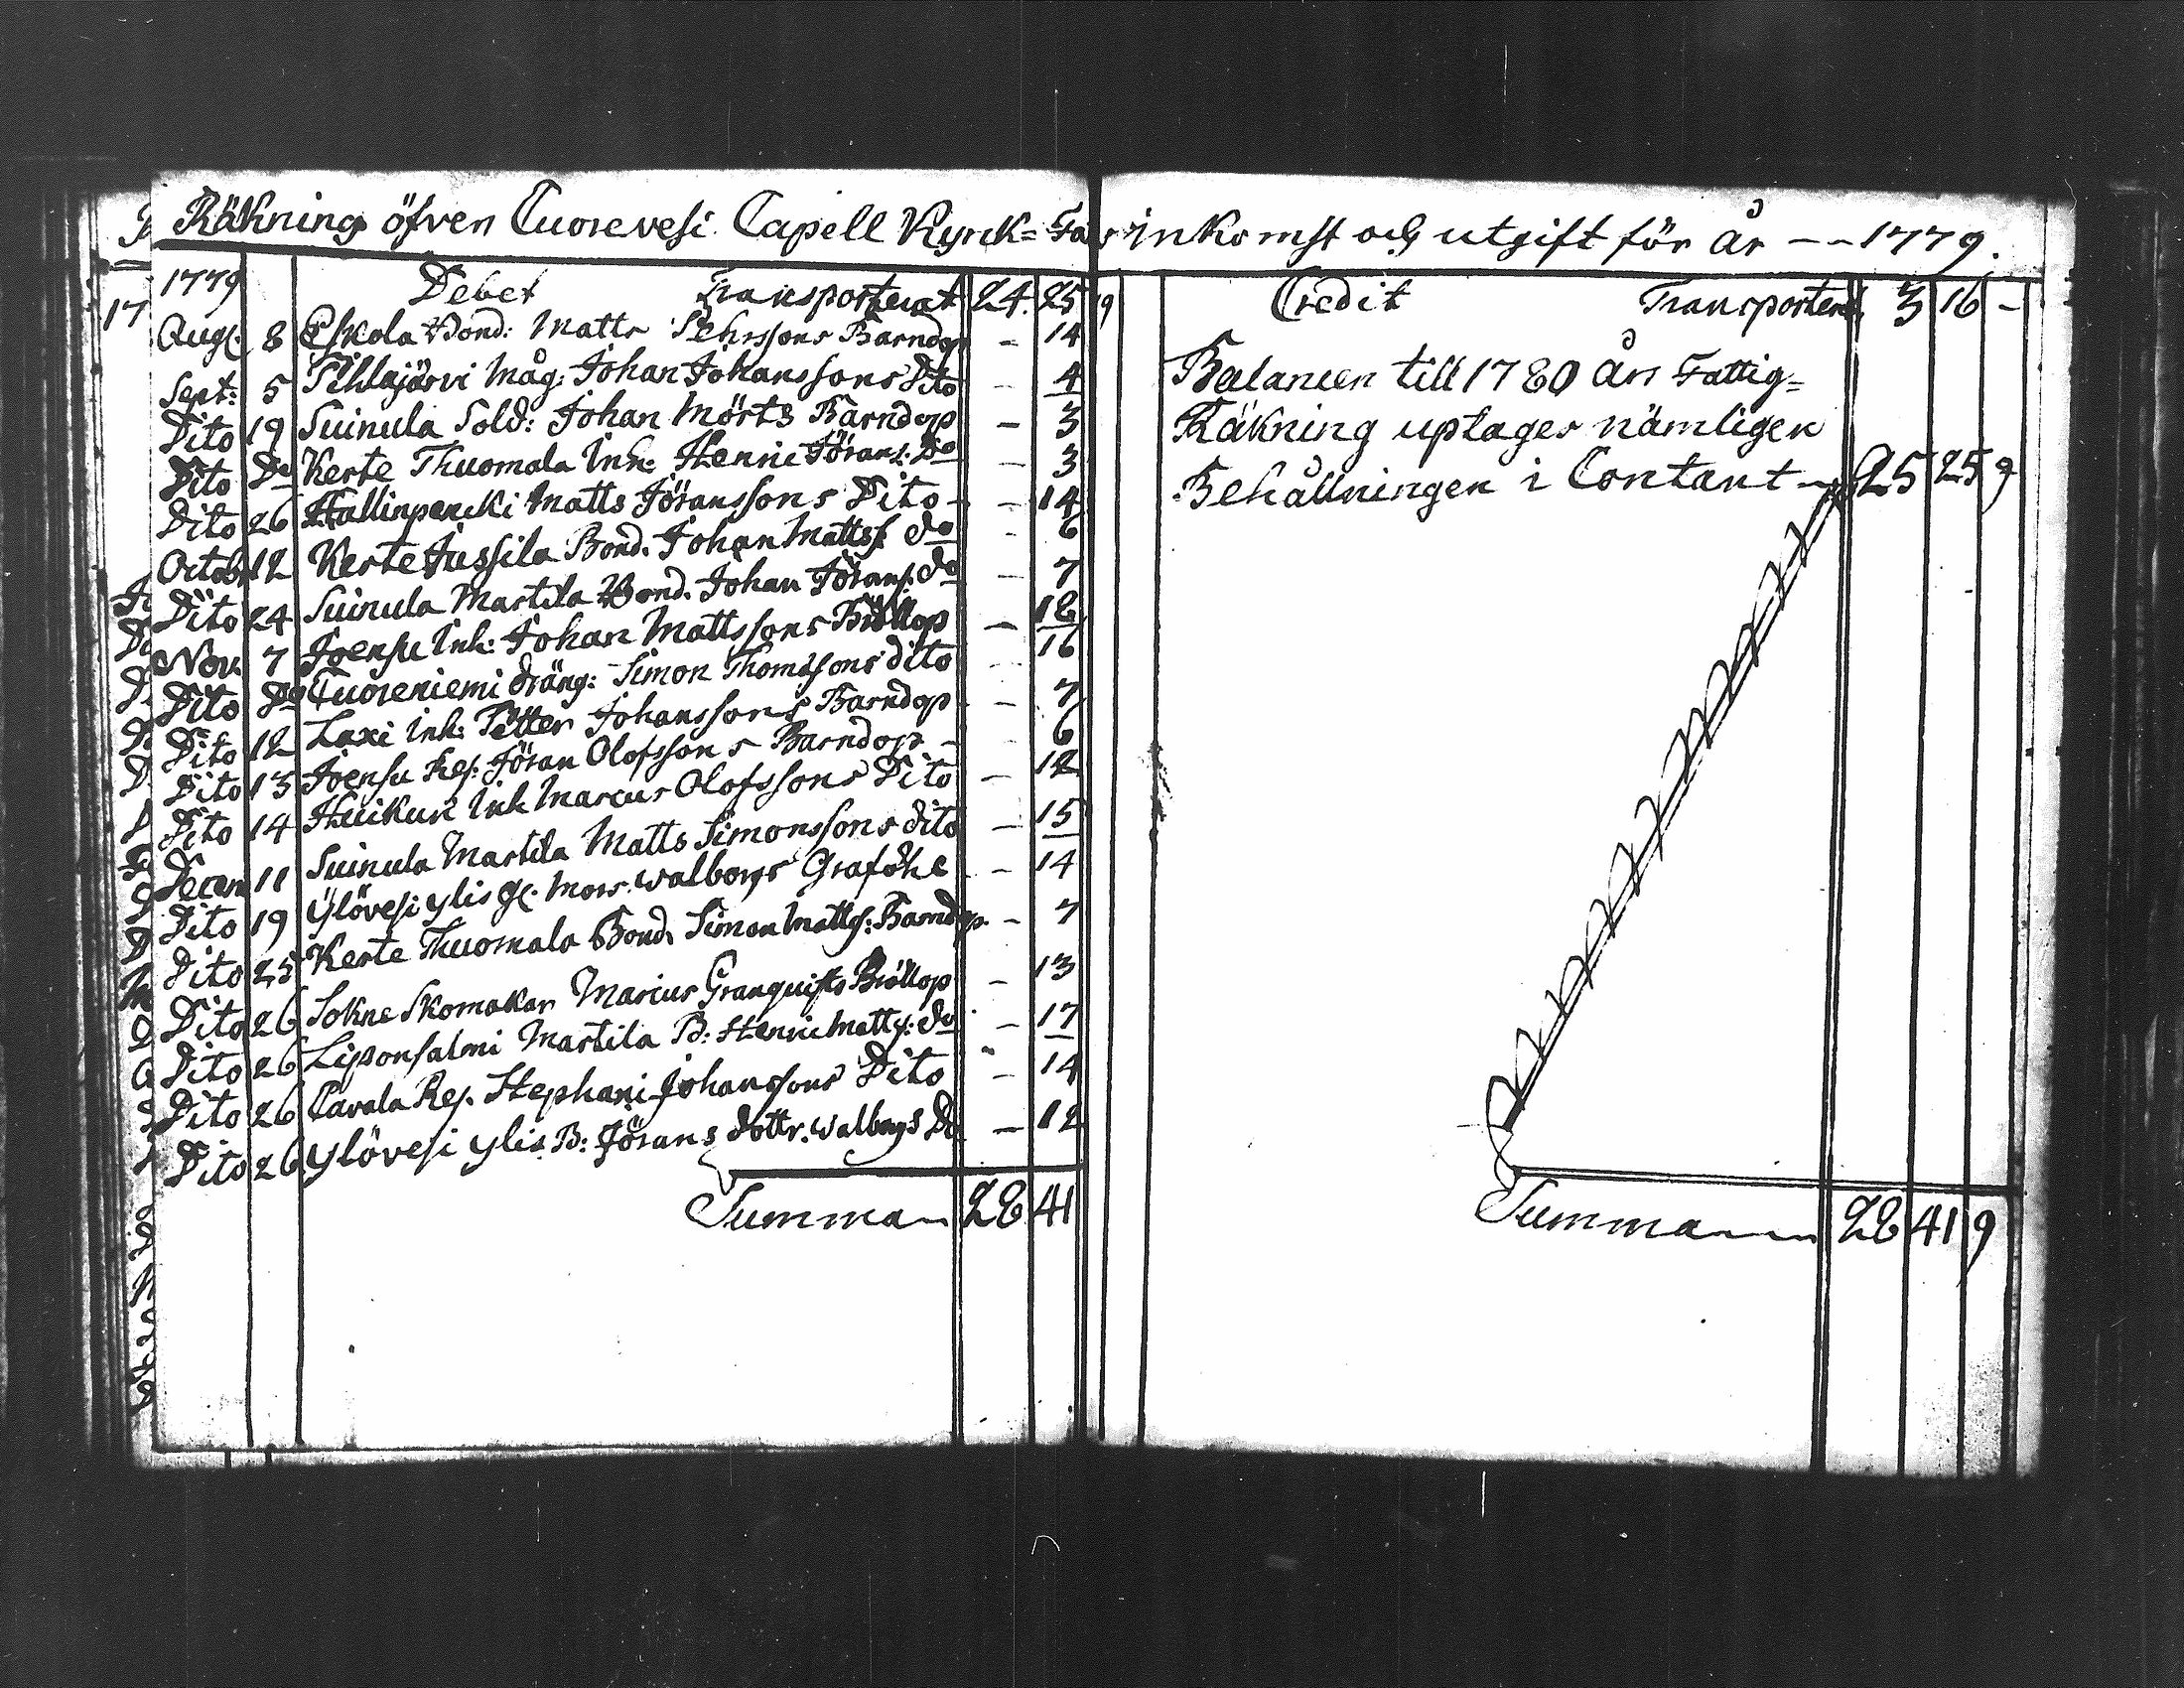 Räkning öfver Cuorevesi Capell Kyrck= Fat inkomst och utgift för år -- 1779.
1779 Debet Transporterat 24. 25 9
Aug. 8 Eskola Bond: Matts Pehrssons Barndop - 14
Sept: 5 Pihlajärvi Måg: Johan Johanssons Dito - 4
Dito 19 Suinula Sold: Johan Mörts Barndop - 3
Dito Do Kerte Thuomala Inh: Henric Jörans: Do - 3
Dito 26 Hallinpencki Matts Jöranssons Dito - - 14
Octobr 12 Kerte Jussila Bond. Johan Mattss. do - 6
Dito 24 Suinula Martila Bond. Johan Jörans: do - 7
Nov. 7 Joensu Inh: Johan Mattssons Bröllop - 18
Dito Do Cuoreniemi dräng: Simon Thomassons dito - 16
Dito 12 Laxi Inh: Petter Johanssons Barndop - 7
Dito 13 Joensu Res: Jöran Olofssons Barndop - - 6
Dito 14 Huikuri Inh Marcus Olofssons Dito - 12
Decem 11 Suinula Martila Matts Simonssons dito - 15
Dito 19 Ylövesi Ylis gl. Mors Walborgs Graföhl - 14
Dito 25 Kerte Thuomala Bond. Simon Mattss: Barndop. - 7
Dito 26 Sokne Skomakar Marcus Granquists Bröllop - 13
Dito 26 Liponsalmi Martila B: Henric Mattss: do - 17
Dito 26 Cavala Res. Stephan Johanssons Dito - 14
Dito 26 Ylövesi Ylis B: Jörans dottr. Walborgs Do - 12
Summa 28 41
Credit Transporterat 3 16 -
Balancen till 1780 års Fattig=
Räkning uptages nämligen
Behållningen i Contant 25 25 9
Summa 28 41 9